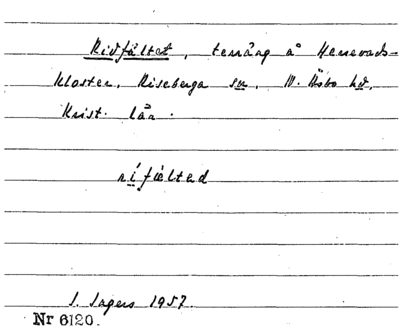 Ridfältet, terräng å Herrevads-
kloster, Riseberga sn, N. Åsbo hd,
Krist. län.
rifæltəd
I. Ingers 1957
Nr 6120.